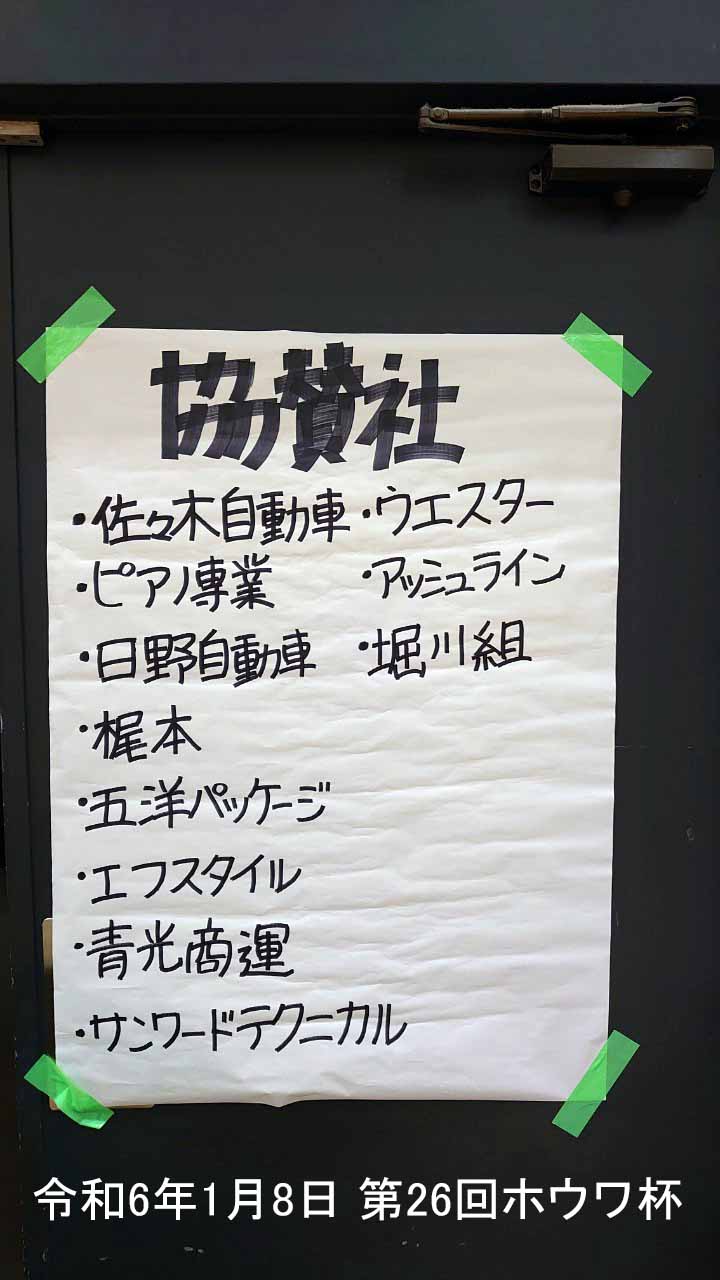 協賛社
・佐々木自動車
・ピアノ専業
・日野自動車
・梶本
・五洋パッケージ
・エフスタイル
・青光商運
・サンワードテクニカル
・ウエスター
・アッシュライン
・堀川組
令和6年1月8日 第26回ホウワ杯